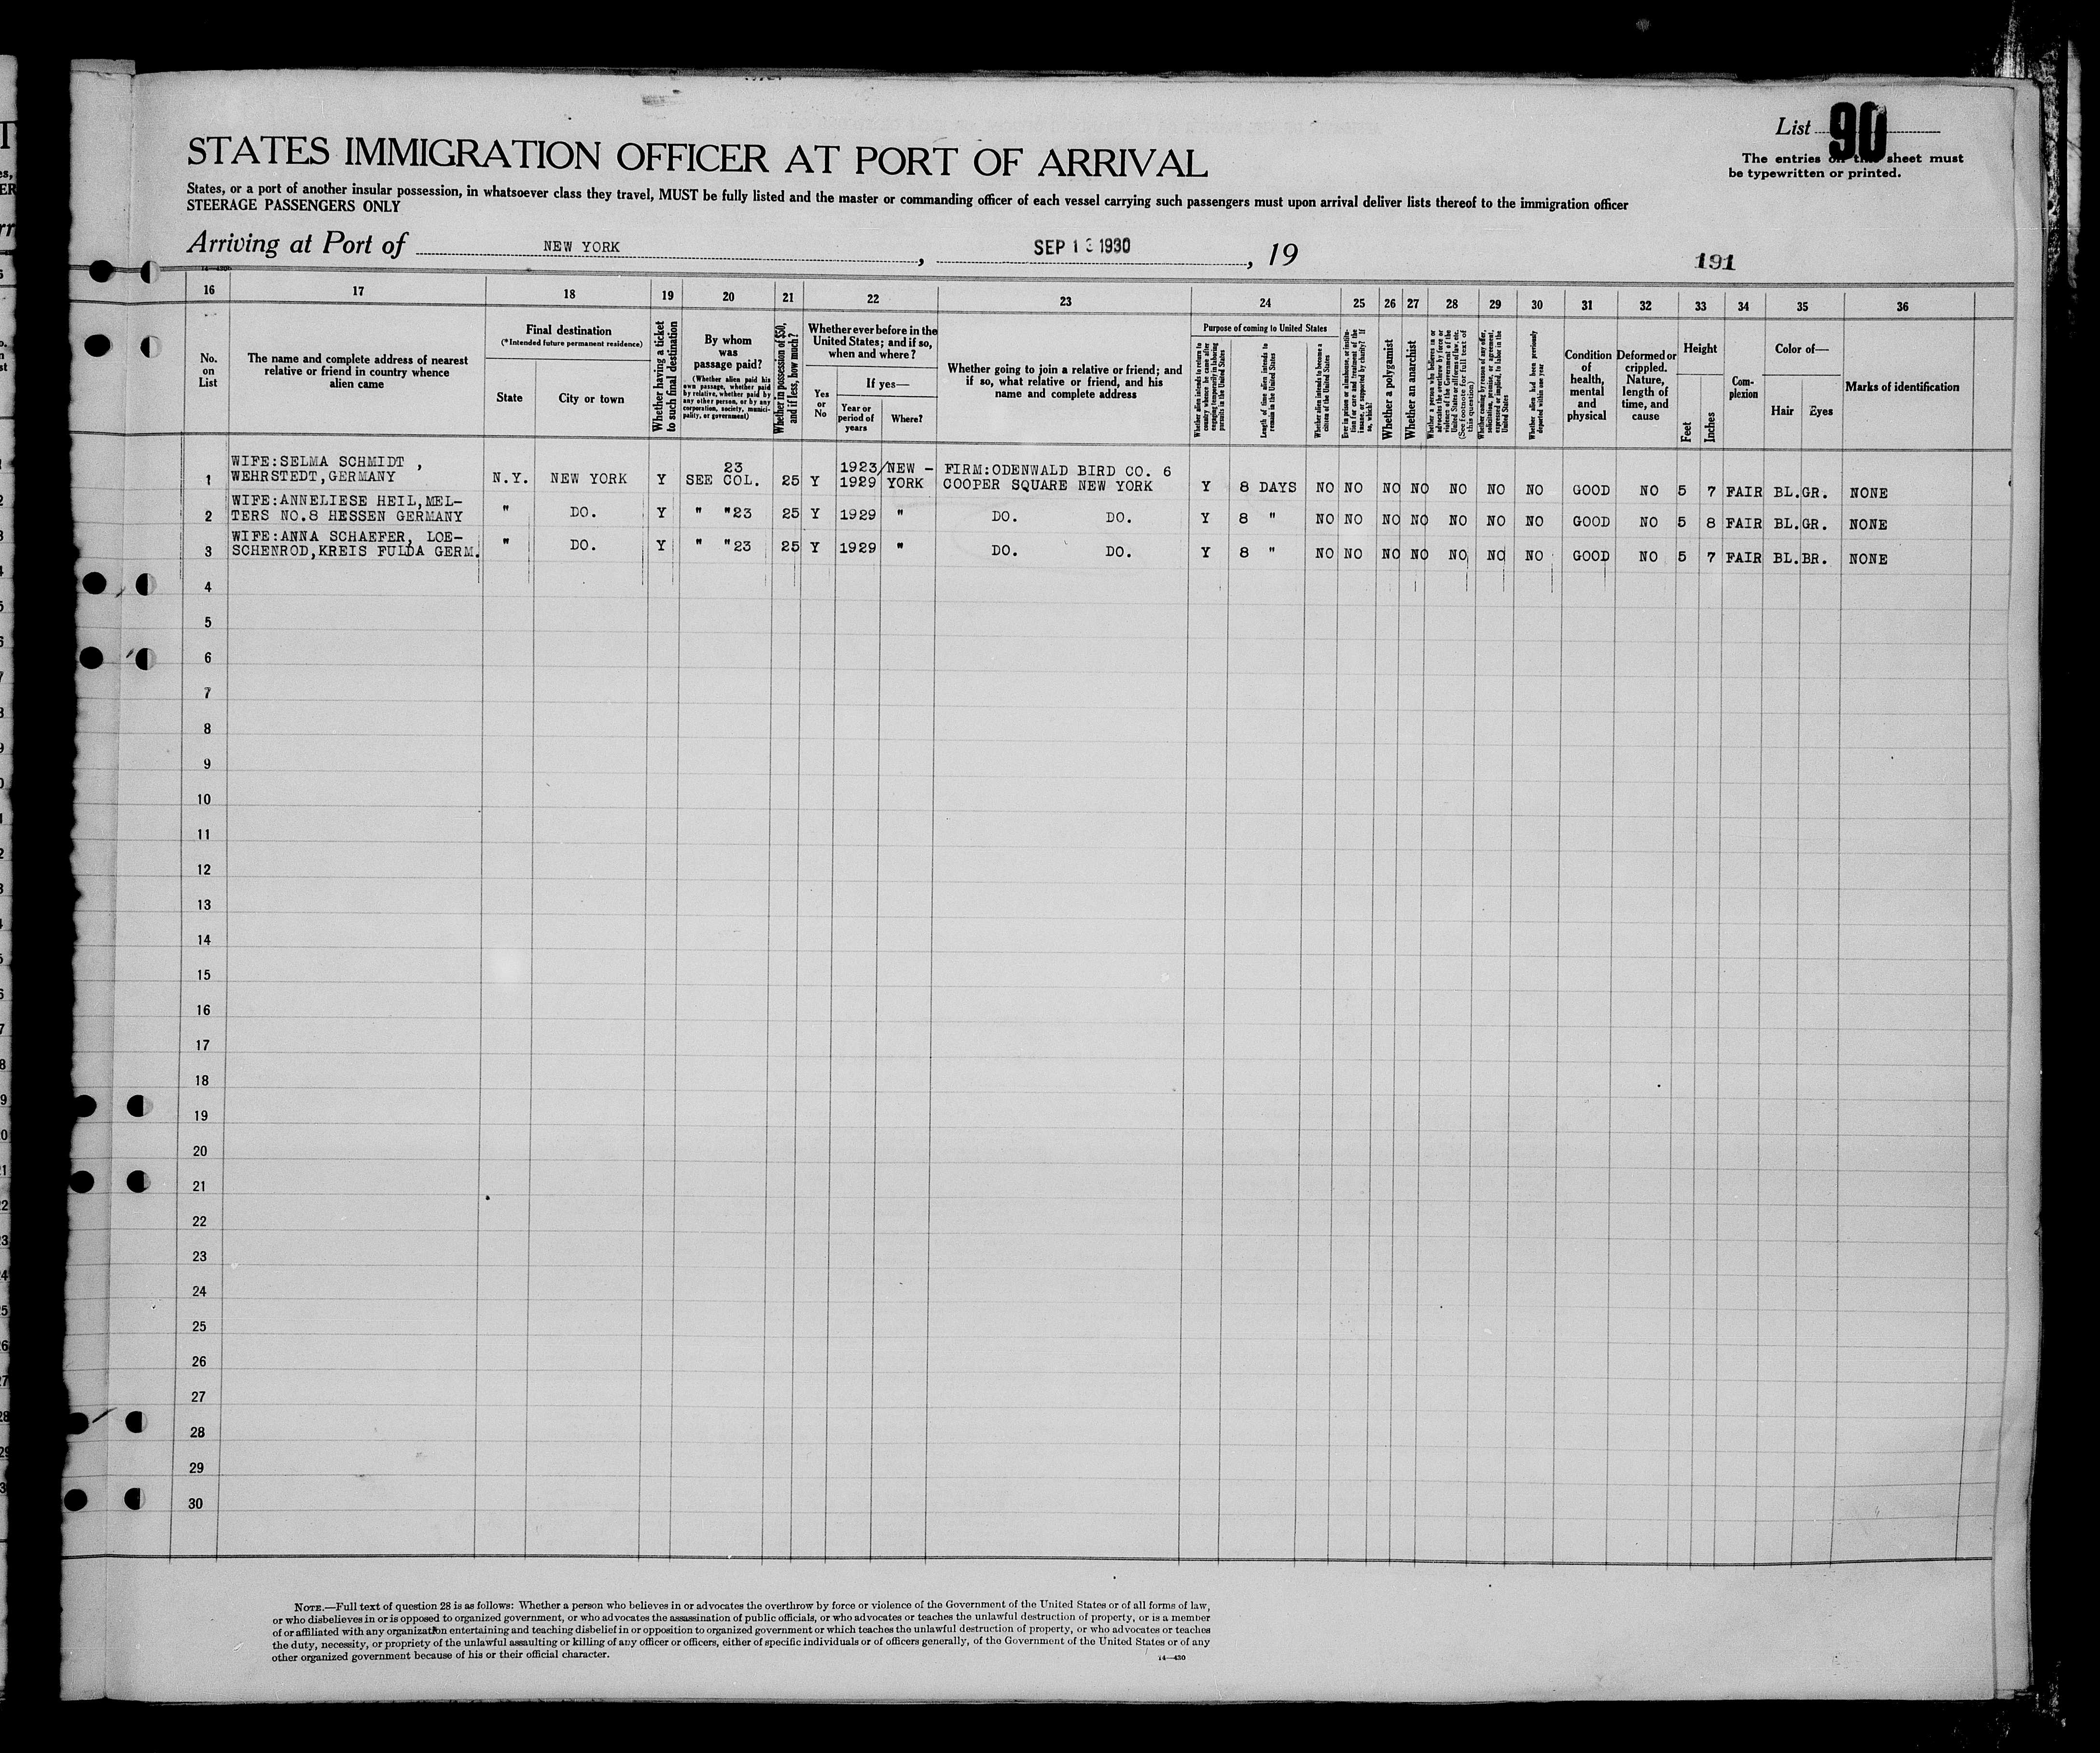 List 90
The entries on this sheet must
be typewritten or printed.
STATES IMMIGRATION OFFICER AT PORT OF ARRIVAL
States, or a port of another insular possession, in whatsoever class they travel, MUST be fully listed and the master or commanding officer of each vessel carrying such passengers must upon arrival deliver lists thereof to the immigration officer
STEERAGE PASSENGERS ONLY
Arriving at Port of NEW YORK, SEP 13 1930, 19
191
16 17 18 19 20 21 22 23 24 25 26 27 28 29 30 31 32 33 34 35 36
No.
on
List
The name and complete address of nearest
relative or friend in country whence
alien came
Final destination
(*Intended future permanent residence)
State
City or town
Whether having a ticket
to such final destination
By whom
was
passage paid?
(Whether alien paid his
own passage, whether paid
by relative, whether paid by
any other person, or by any
corporation, society, munici-
pality, or government)
Whether in possession of $50,
and if less, how much?
Whether ever before in the
United States; and if so,
when and where?
Yes
or
No
If yes—
Year or
period of
years
Where?
Whether going to join a relative or friend; and
if so, what relative or friend, and his
name and complete address
Purpose of coming to United States
Whether alien intends to return to
country whence he came after
engaging temporarily in laboring
pursuits in the United States
Length of time alien intends to
remain in the United States
Whether alien intends to become a
citizen of the United States
Ever in prison or almshouse, or institu-
tion for care and treatment of the
insane, or supported by charity? If
so, which?
Whether a polygamist
Whether an anarchist
Whether a person who believes in or
advocates the overthrow by force or
violence of the Government of the
United States or all forms of law, etc.
(See footnote for full text of
this question)
Whether coming by reason of any offer,
solicitation, promise, or agreement,
expressed or implied, to labor in the
United States
Whether alien had been previously
deported within one year
Condition
of
health,
mental
and
physical
Deformed or
crippled.
Nature,
length of
time, and
cause
Height
Feet
Inches
Com-
plexion
Color of—
Hair
Eyes
Marks of identification
1 WIFE:SELMA SCHMIDT , WEHRSTEDT,GERMANY N.Y. NEW YORK Y SEE 23 COL. 25 Y 1923/1929 NEW - YORK FIRM:ODENWALD BIRD CO. 6 COOPER SQUARE NEW YORK Y 8 DAYS NO NO NO NO NO NO NO GOOD NO 5 7 FAIR BL. GR. NONE
2 WIFE:ANNELIESE HEIL,MEL- TERS NO.8 HESSEN GERMANY " DO. Y " "23 25 Y 1929 " DO. DO. Y 8 " NO NO NO NO NO NO NO GOOD NO 5 8 FAIR BL. GR. NONE
3 WIFE:ANNA SCHAEFER, LOE- SCHENROD,KREIS FULDA GERM. " DO. Y " "23 25 Y 1929 " DO. DO. Y 8 " NO NO NO NO NO NO NO GOOD NO 5 7 FAIR BL. BR. NONE
4
5
6
7
8
9
10
11
12
13
14
15
16
17
18
19
20
21
22
23
24
25
26
27
28
29
30
NOTE.—Full text of question 28 is as follows: Whether a person who believes in or advocates the overthrow by force or violence of the Government of the United States or of all forms of law,
or who disbelieves in or is opposed to organized government, or who advocates the assassination of public officials, or who advocates or teaches the unlawful destruction of property, or is a member
of or affiliated with any organization entertaining and teaching disbelief in or opposition to organized government or which teaches the unlawful destruction of property, or who advocates or teaches
the duty, necessity, or propriety of the unlawful assaulting or killing of any officer or officers, either of specific individuals or of officers generally, of the Government of the United States or of any
other organized government because of his or their official character.
14—430